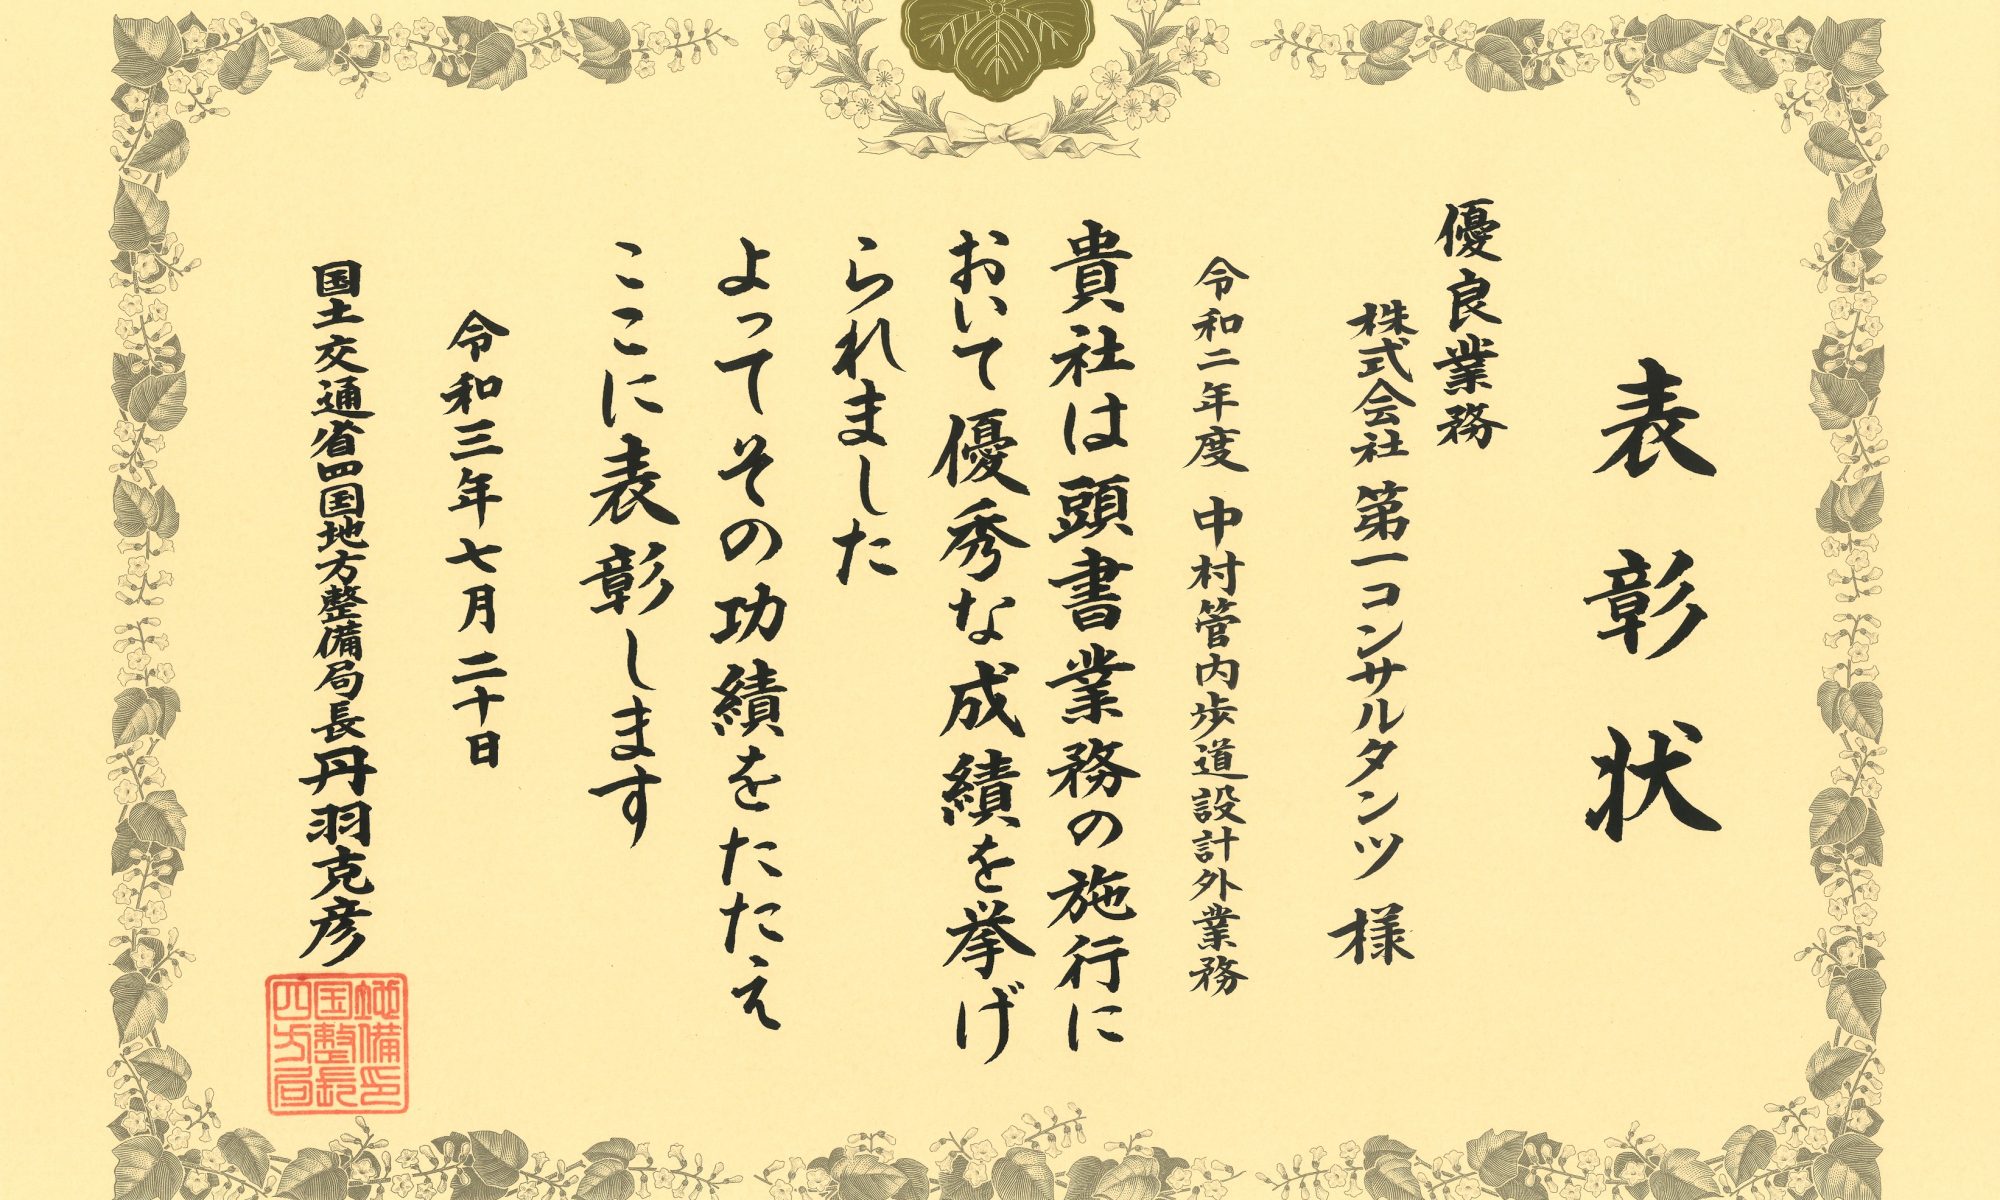 表彰状
優良業務
株式会社 第一コンサルタンツ 様
令和二年度 中村管内歩道設計外業務
貴社は頭書業務の施行に
おいて優秀な成績を挙げ
られました
よってその功績をたたえ
ここに表彰します
令和三年七月二十日
国土交通省四国地方整備局長 丹羽克彦
四国地
方整備
局長印